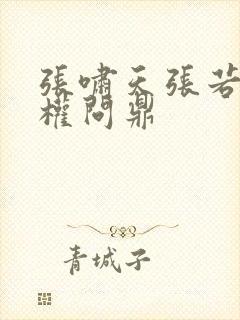 張嘯天張若
權問鼎
青城子